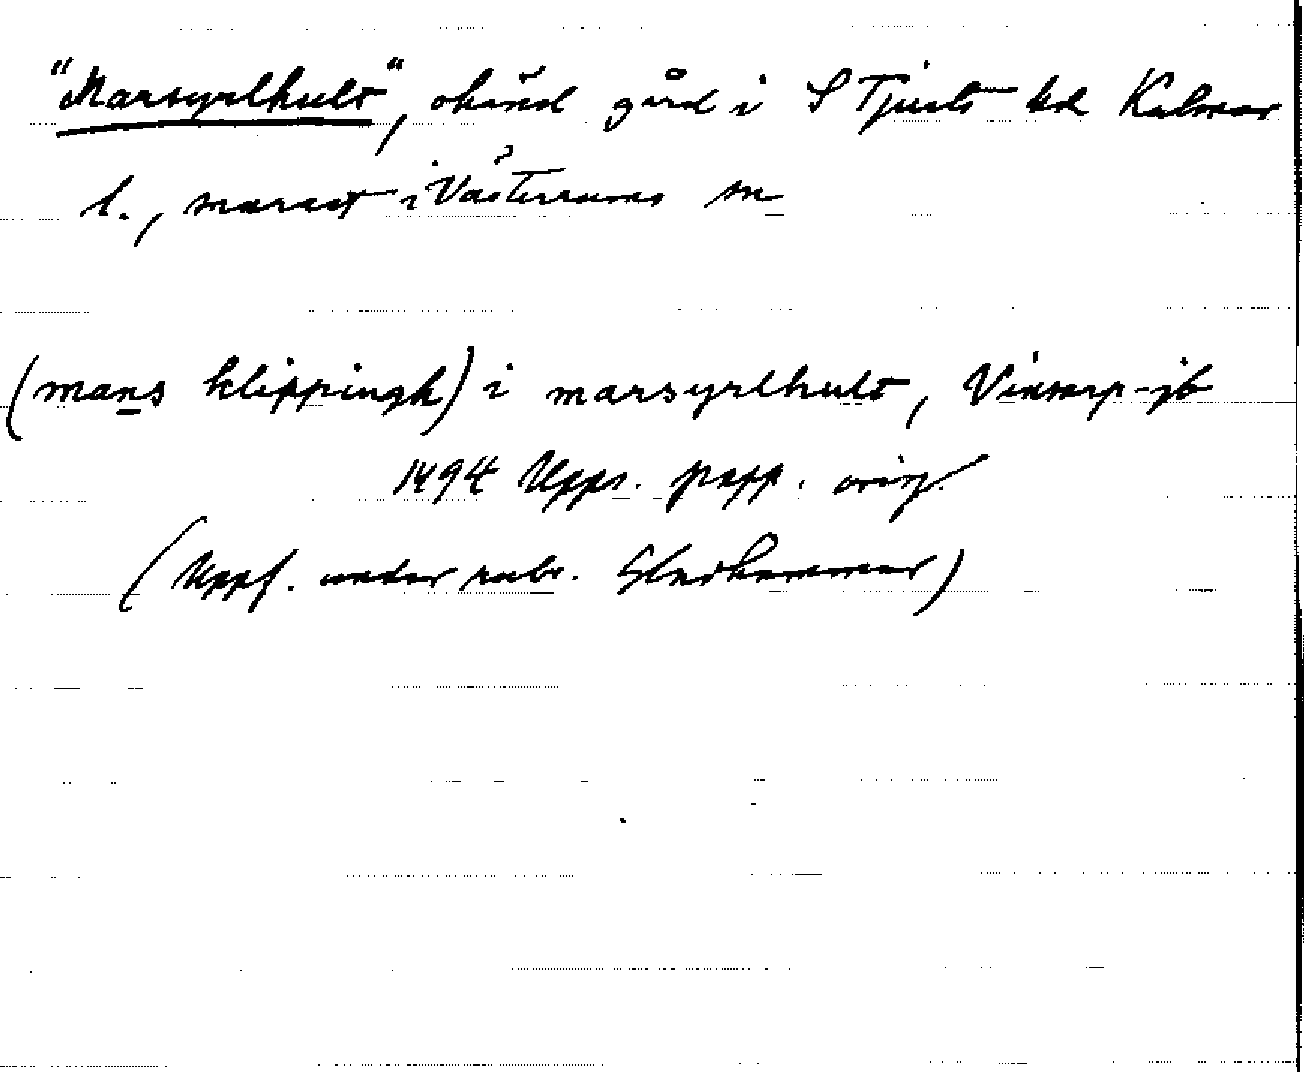 "Marsyrlhult", okänd gård i S Tjust hd Kalmar
l., snarast i Västerrums sn
(mans klippingh) i marsyrlhult, Vinstorp-jb
1494 Upps. papp. orig.
(Uppf. under rubr. Gladhammar)